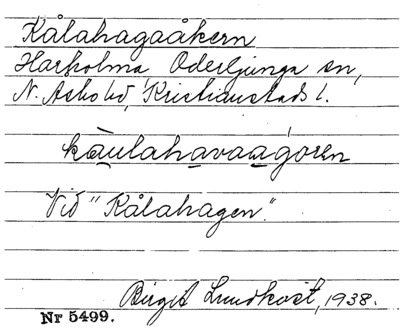 Kålahagaåkern
Harholma, Oderljunga sn,
N. Åsbo hd, Kristianstads l.
kåulahavaagoren
Vid "Kålahagen".
Birgit Lundkvist, 1938.
Nr 5499.